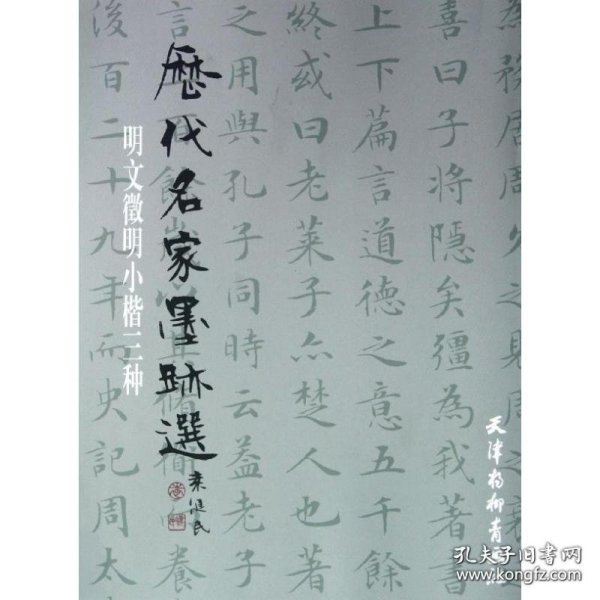 為務居周久之見周
喜曰子將隱矣彊為我著書
上下篇言道德之意五千餘
終或曰老萊子亦楚人也著
之用與孔子同時云益老子
後百二十九年而史記周太
歷代名家墨跡選
明文徵明小楷三种
天津杨柳青画社
孔夫子旧书网
www.kongfz.com